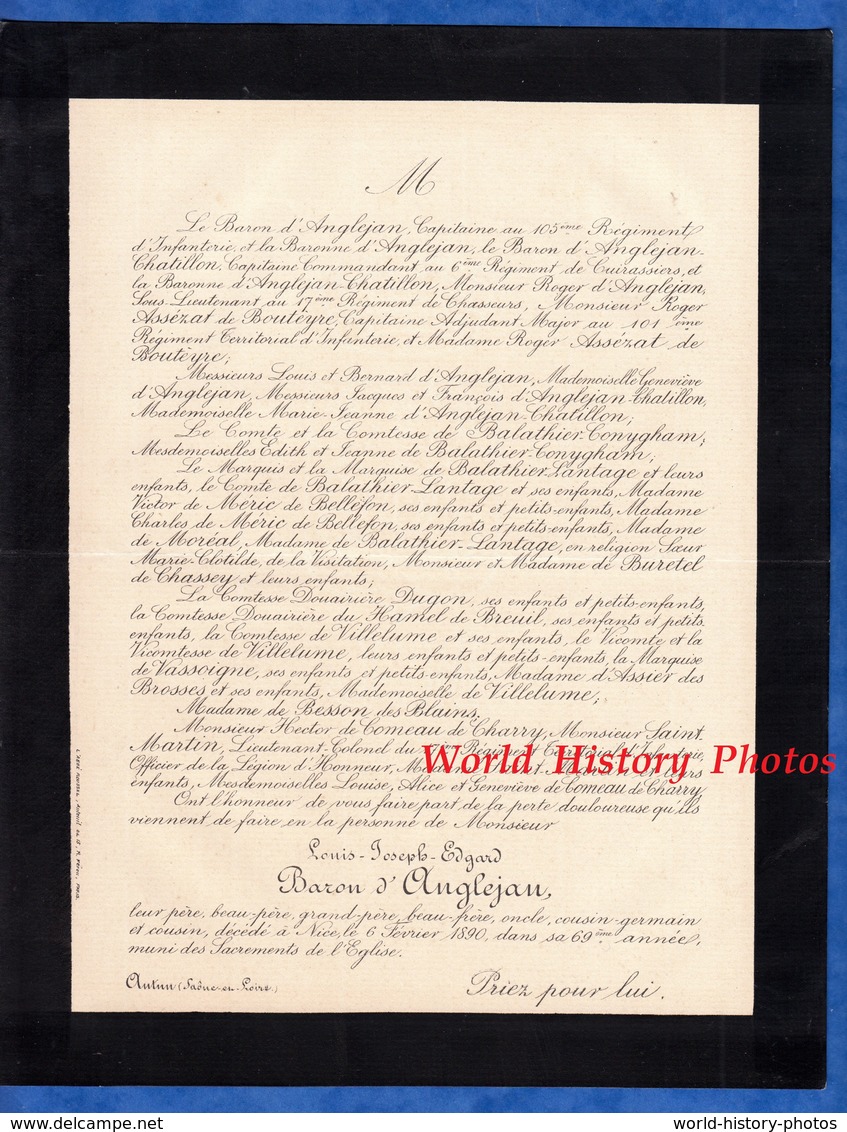 M
Le Baron d'Anglejan, Capitaine au 105ème Régiment
d'Infanterie, et la Baronne d'Anglejan, le Baron d'Anglejan-
Chatillon, Capitaine Commandant au 6ème Régiment de Cuirassiers, et
la Baronne d'Anglejan-Chatillon, Monsieur Roger d'Anglejan,
Sous-Lieutenant au 17ème Régiment de Chasseurs, Monsieur Roger
Assézat de Boutèyre, Capitaine Adjudant Major au 101ème
Régiment Territorial d'Infanterie, et Madame Roger Assézat de
Boutèyre;
Messieurs Louis et Bernard d'Anglejan, Mademoiselle Geneviève
d'Anglejan, Messieurs Jacques et François d'Anglejan-Chatillon,
Mademoiselle Marie-Jeanne d'Anglejan-Chatillon;
Le Comte et la Comtesse de Balathier-Conygham;
Mesdemoiselles Edith et Jeanne de Balathier-Conygham;
Le Marquis et la Marquise de Balathier-Lantage et leurs
enfants, le Comte de Balathier-Lantage et ses enfants, Madame
Victor de Méric de Bellefon, ses enfants et petits-enfants, Madame
Charles de Méric de Bellefon, ses enfants et petits-enfants, Madame
de Moréal, Madame de Balathier-Lantage, en religion Sœur
Marie-Clotilde, de la Visitation, Monsieur et Madame de Buretel
de Chassey et leurs enfants;
La Comtesse Douairière Dugon, ses enfants et petits-enfants,
la Comtesse Douairière du Hamel de Breuil, ses enfants et petits-
enfants, la Comtesse de Villelume et ses enfants, le Vicomte et la
Vicomtesse de Villelume, leurs enfants et petits-enfants, la Marquise
de Vassoigne, ses enfants et petits-enfants, Madame d'Assier des
Brosses et ses enfants, Mademoiselle de Villelume;
Madame de Besson des Blains,
Monsieur Hector de Comeau de Charry, Monsieur Saint
Martin, Lieutenant-Colonel du Régiment Territorial d'Infanterie,
World History Photos
Officier de la Légion d'Honneur, et leurs
enfants, Mesdemoiselles Louise, Alice et Geneviève de Comeau de Charry
Ont l'honneur de vous faire part de la perte douloureuse qu'ils
viennent de faire en la personne de Monsieur
Louis-Joseph-Edgard
Baron d'Anglejan,
leur père, beau-père, grand-père, beau-frère, oncle, cousin-germain
et cousin, décédé à Nice, le 6 Février 1890, dans sa 69ème année,
muni des Sacrements de l'Eglise.
Autun (Saône-et-Loire)
Priez pour lui.
world-history-photos